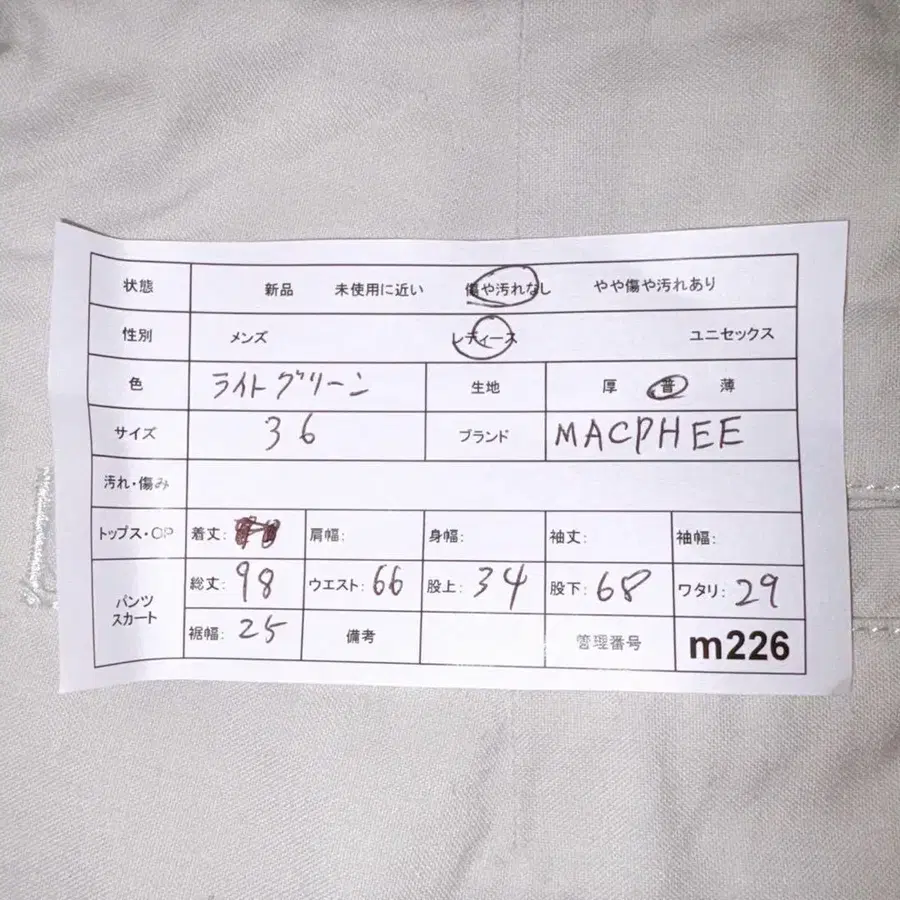 状態 新品 未使用に近い 傷や汚れなし やや傷や汚れあり
性別 メンズ レディース ユニセックス
色 ライトグリーン 生地 厚 普 薄
サイズ 36 ブランド MACPHEE
汚れ・傷み
トップス・OP 着丈: 肩幅: 身幅: 袖丈: 袖幅:
パンツ スカート 総丈: 98 ウエスト: 66 股上: 34 股下: 68 ワタリ: 29
裾幅: 25 備考 管理番号 m226